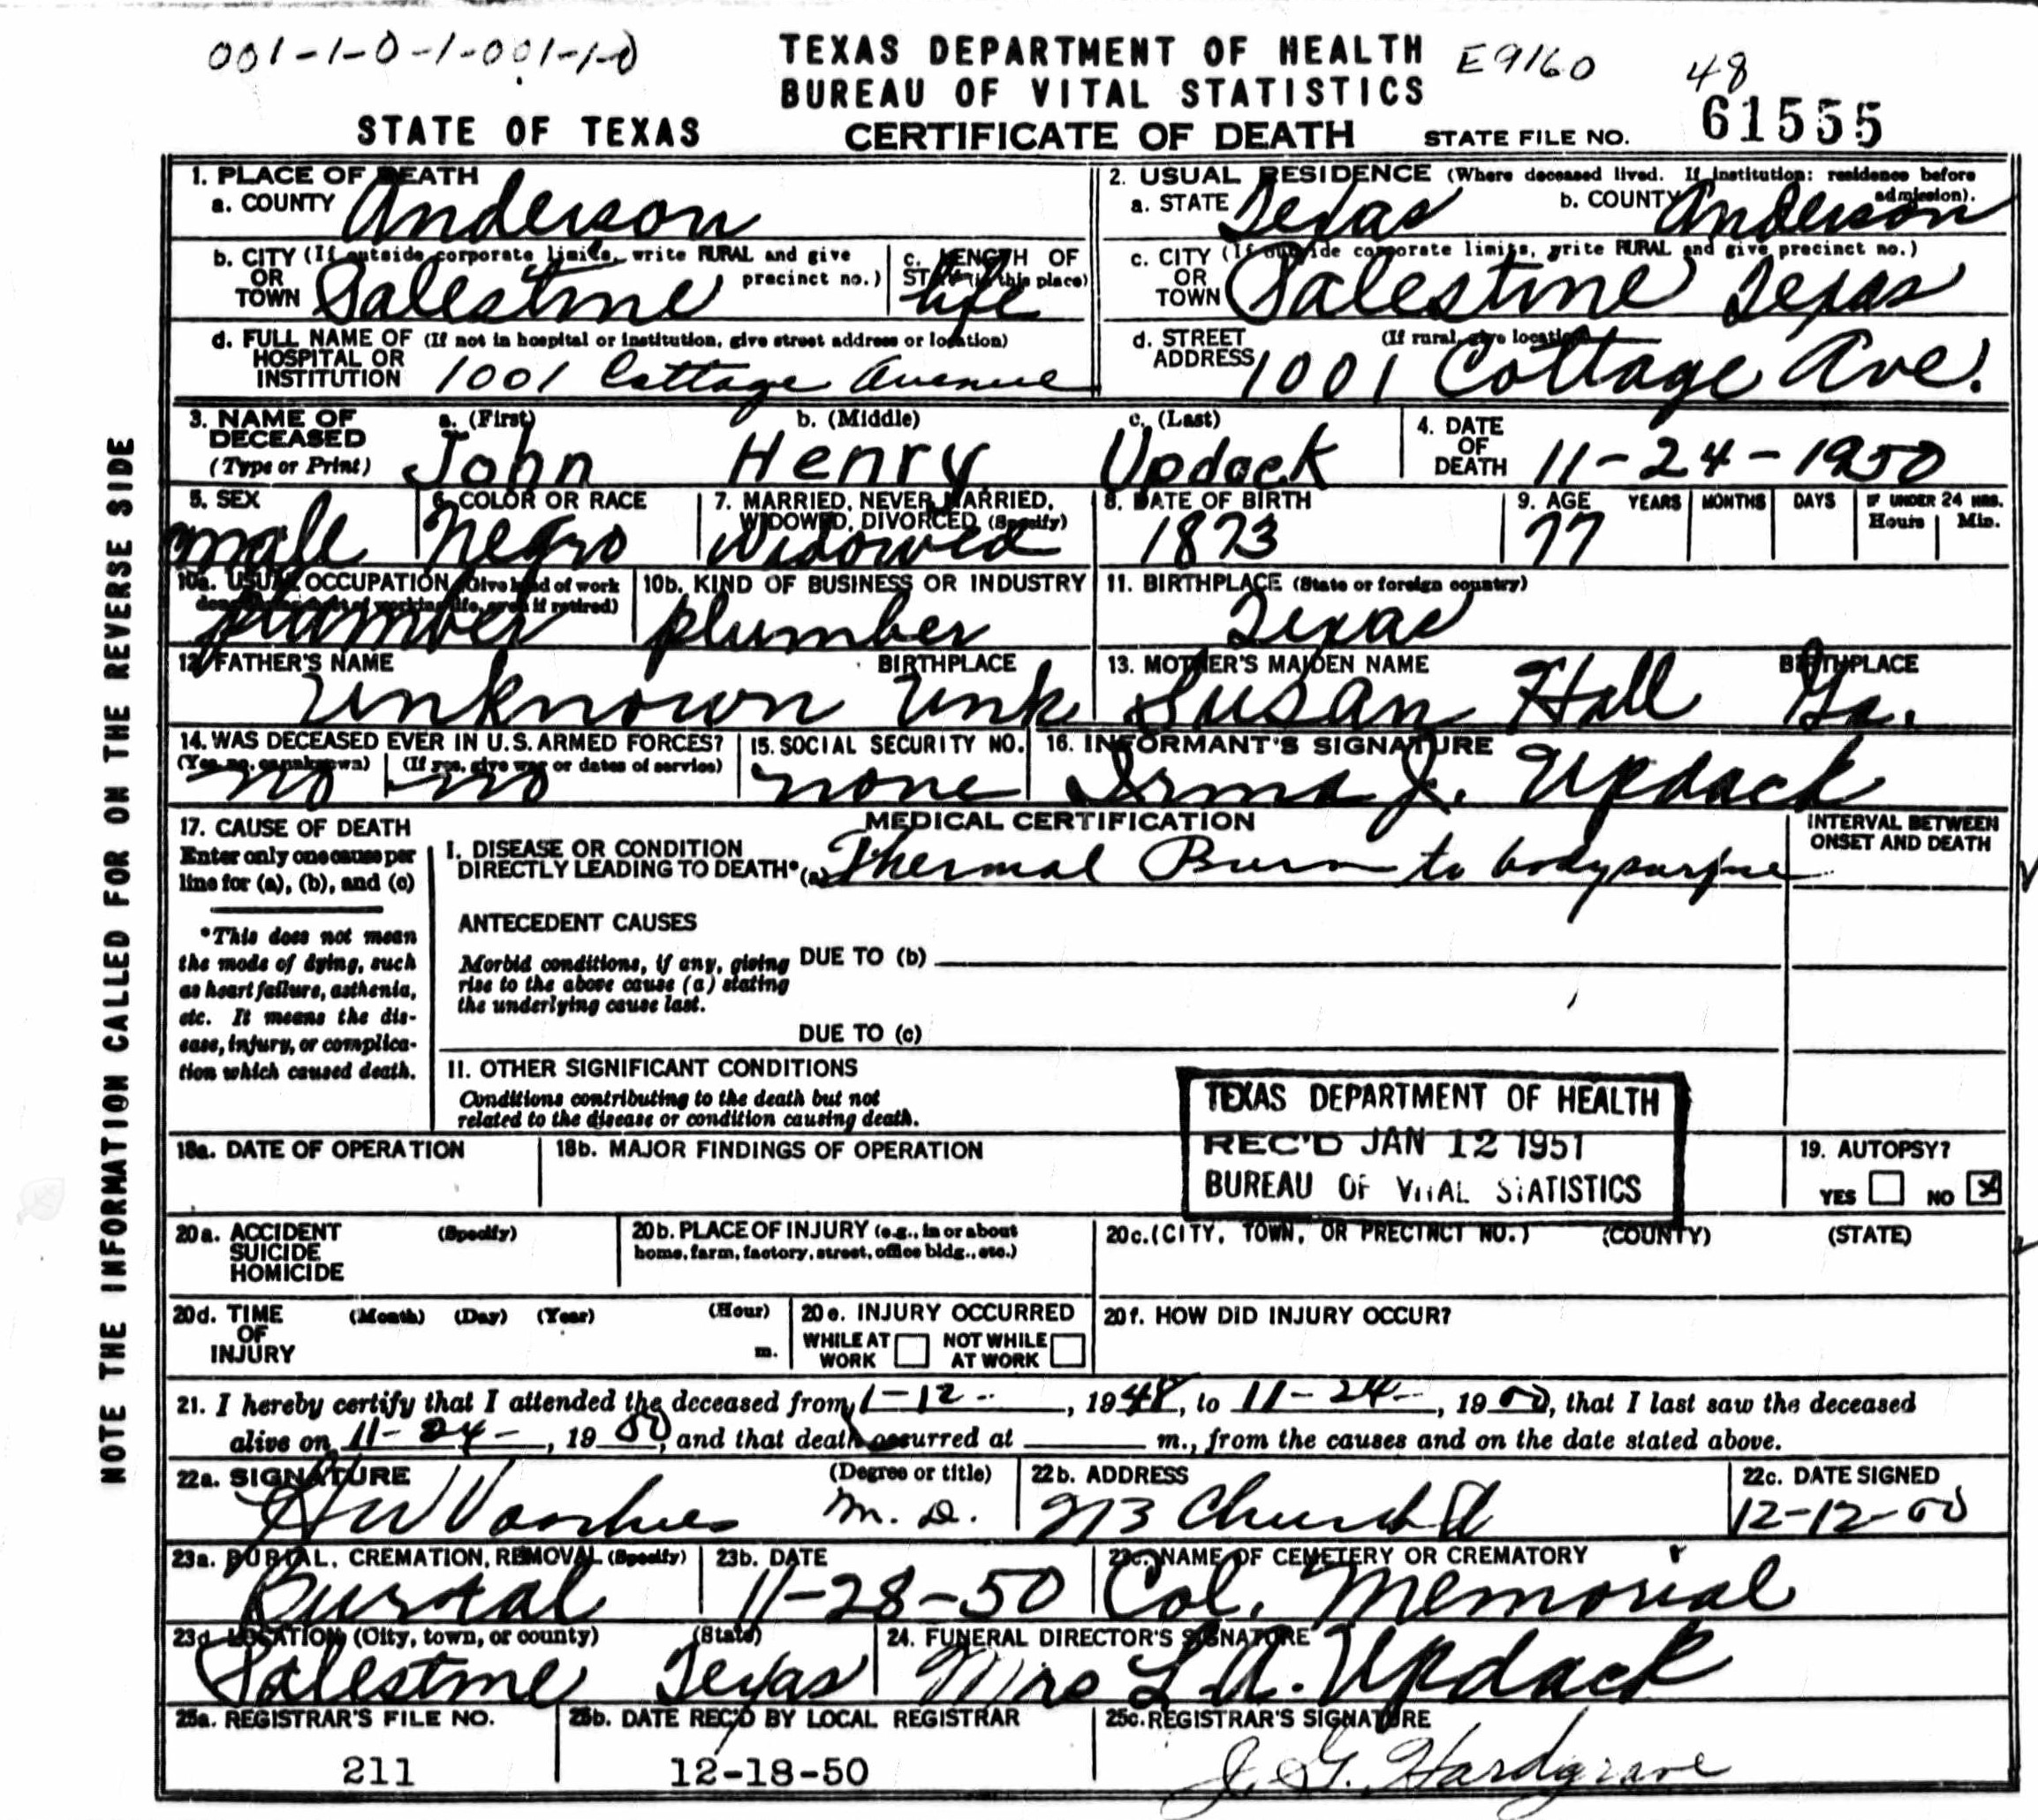 001-1-0-1-001-1-0
TEXAS DEPARTMENT OF HEALTH E9160 48
BUREAU OF VITAL STATISTICS
STATE OF TEXAS CERTIFICATE OF DEATH STATE FILE NO. 61555
NOTE THE INFORMATION CALLED FOR ON THE REVERSE SIDE
1. PLACE OF DEATH
a. COUNTY Anderson
2. USUAL RESIDENCE (Where deceased lived. If institution: residence before admission).
a. STATE Texas b. COUNTY Anderson
b. CITY (If outside corporate limits, write RURAL and give precinct no.)
OR
TOWN Palestine
c. LENGTH OF STAY (in this place)
life
c. CITY (If outside corporate limits, write RURAL and give precinct no.)
OR
TOWN Palestine Texas
d. FULL NAME OF (If not in hospital or institution, give street address or location)
HOSPITAL OR
INSTITUTION 1001 Cottage Avenue
d. STREET (If rural, give location)
ADDRESS 1001 Cottage Ave.
3. NAME OF DECEASED a. (First) b. (Middle) c. (Last)
(Type or Print) John Henry Updack
4. DATE OF DEATH 11-24-1950
5. SEX
male
6. COLOR OR RACE
Negro
7. MARRIED, NEVER MARRIED, WIDOWED, DIVORCED (Specify)
Widowed
8. DATE OF BIRTH
1873
9. AGE YEARS MONTHS DAYS IF UNDER 24 HRS. Hours Min.
77
10a. USUAL OCCUPATION (Give kind of work done during most of working life, even if retired)
plumber
10b. KIND OF BUSINESS OR INDUSTRY
plumber
11. BIRTHPLACE (State or foreign country)
Texas
12. FATHER'S NAME BIRTHPLACE
Unknown Unk
13. MOTHER'S MAIDEN NAME BIRTHPLACE
Susan Hall Ga.
14. WAS DECEASED EVER IN U.S. ARMED FORCES?
(Yes, no, or unknown) (If yes, give war or dates of service)
no no
15. SOCIAL SECURITY NO.
none
16. INFORMANT'S SIGNATURE
Irma J. Updack
17. CAUSE OF DEATH
Enter only one cause per
line for (a), (b), and (c)
*This does not mean
the mode of dying, such
as heart failure, asthenia,
etc. It means the dis-
ease, injury, or complica-
tion which caused death.
MEDICAL CERTIFICATION
INTERVAL BETWEEN ONSET AND DEATH
I. DISEASE OR CONDITION
DIRECTLY LEADING TO DEATH* (a) Thermal Burn to body surface
ANTECEDENT CAUSES
Morbid conditions, if any, giving
rise to the above cause (a) stating
the underlying cause last.
DUE TO (b)
DUE TO (c)
II. OTHER SIGNIFICANT CONDITIONS
Conditions contributing to the death but not
related to the disease or condition causing death.
TEXAS DEPARTMENT OF HEALTH
REC'D JAN 12 1951
BUREAU OF VITAL STATISTICS
18a. DATE OF OPERATION
18b. MAJOR FINDINGS OF OPERATION
19. AUTOPSY?
YES NO X
20a. ACCIDENT (Specify)
SUICIDE
HOMICIDE
20b. PLACE OF INJURY (e.g., in or about
home, farm, factory, street, office bldg., etc.)
20c. (CITY, TOWN, OR PRECINCT NO.) (COUNTY) (STATE)
20d. TIME (Month) (Day) (Year) (Hour)
OF
INJURY m.
20e. INJURY OCCURRED
WHILE AT WORK NOT WHILE AT WORK
20f. HOW DID INJURY OCCUR?
21. I hereby certify that I attended the deceased from 1-12-, 1948, to 11-24-, 1950, that I last saw the deceased
alive on 11-24-, 1950, and that death occurred at m., from the causes and on the date stated above.
22a. SIGNATURE (Degree or title)
H W Voorhies M.D.
22b. ADDRESS
213 Church St
22c. DATE SIGNED
12-12-50
23a. BURIAL, CREMATION, REMOVAL (Specify)
Burial
23b. DATE
11-28-50
23c. NAME OF CEMETERY OR CREMATORY
Col. Memorial
23d. LOCATION (City, town, or county) (State)
Palestine Texas
24. FUNERAL DIRECTOR'S SIGNATURE
Mrs L.A. Updack
25a. REGISTRAR'S FILE NO.
211
25b. DATE REC'D BY LOCAL REGISTRAR
12-18-50
25c. REGISTRAR'S SIGNATURE
J. G. Hardgrave